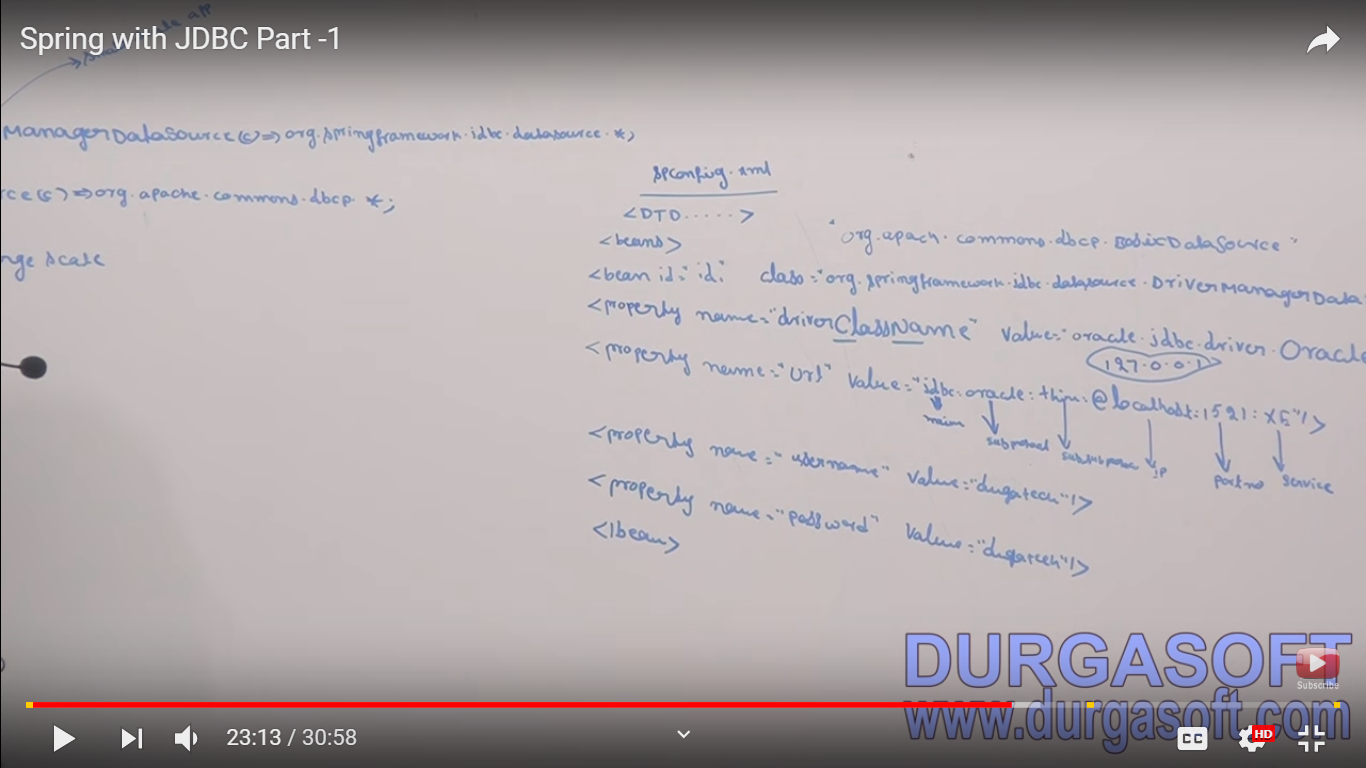 Spring with JDBC Part -1
app
ManagerDataSource(c)=>org.springframework.jdbc.datasource.*;
spconfig.xml
rce(c)=>org.apache.commons.dbcp.*;
<DTD.....>
<beans>
"org.apach.commons.dbcp.BasicDataSource"
nge scale
<bean id="id" class="org.springframework.jdbc.datasource.DriverManagerData
<property name="driverClassName" value="oracle.jdbc.driver.Oracle
127.0.0.1
<property name="url" value="jdbc:oracle:thin:@localhost:1521:XE"/>
main subprotocol IP portno service
<property name="username" value="dugatech"/>
<property name="password" value="dugatech"/>
</bean>
DURGASOFT
Subscribe
www.durgasoft.com
23:13 / 30:58
CC
HD